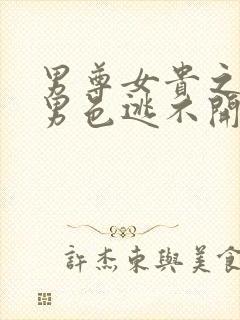 男尊女貴之
男色逃不開
許杰東與美食